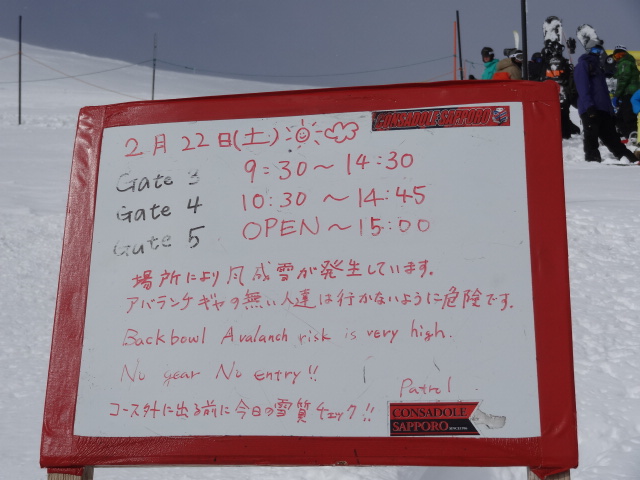 2月 22日(土)
CONSADOLE SAPPORO
Gate 3 9:30〜14:30
Gate 4 10:30〜14:45
Gate 5 OPEN〜15:00
場所により風成雪が発生しています.
アバランチギヤの無い人達は行かないように危険です.
Backbowl Avalanch risk is very high.
No gear No entry!!
Patrol
コース外に出る前に今日の雪質チェック!!
CONSADOLE
SAPPORO